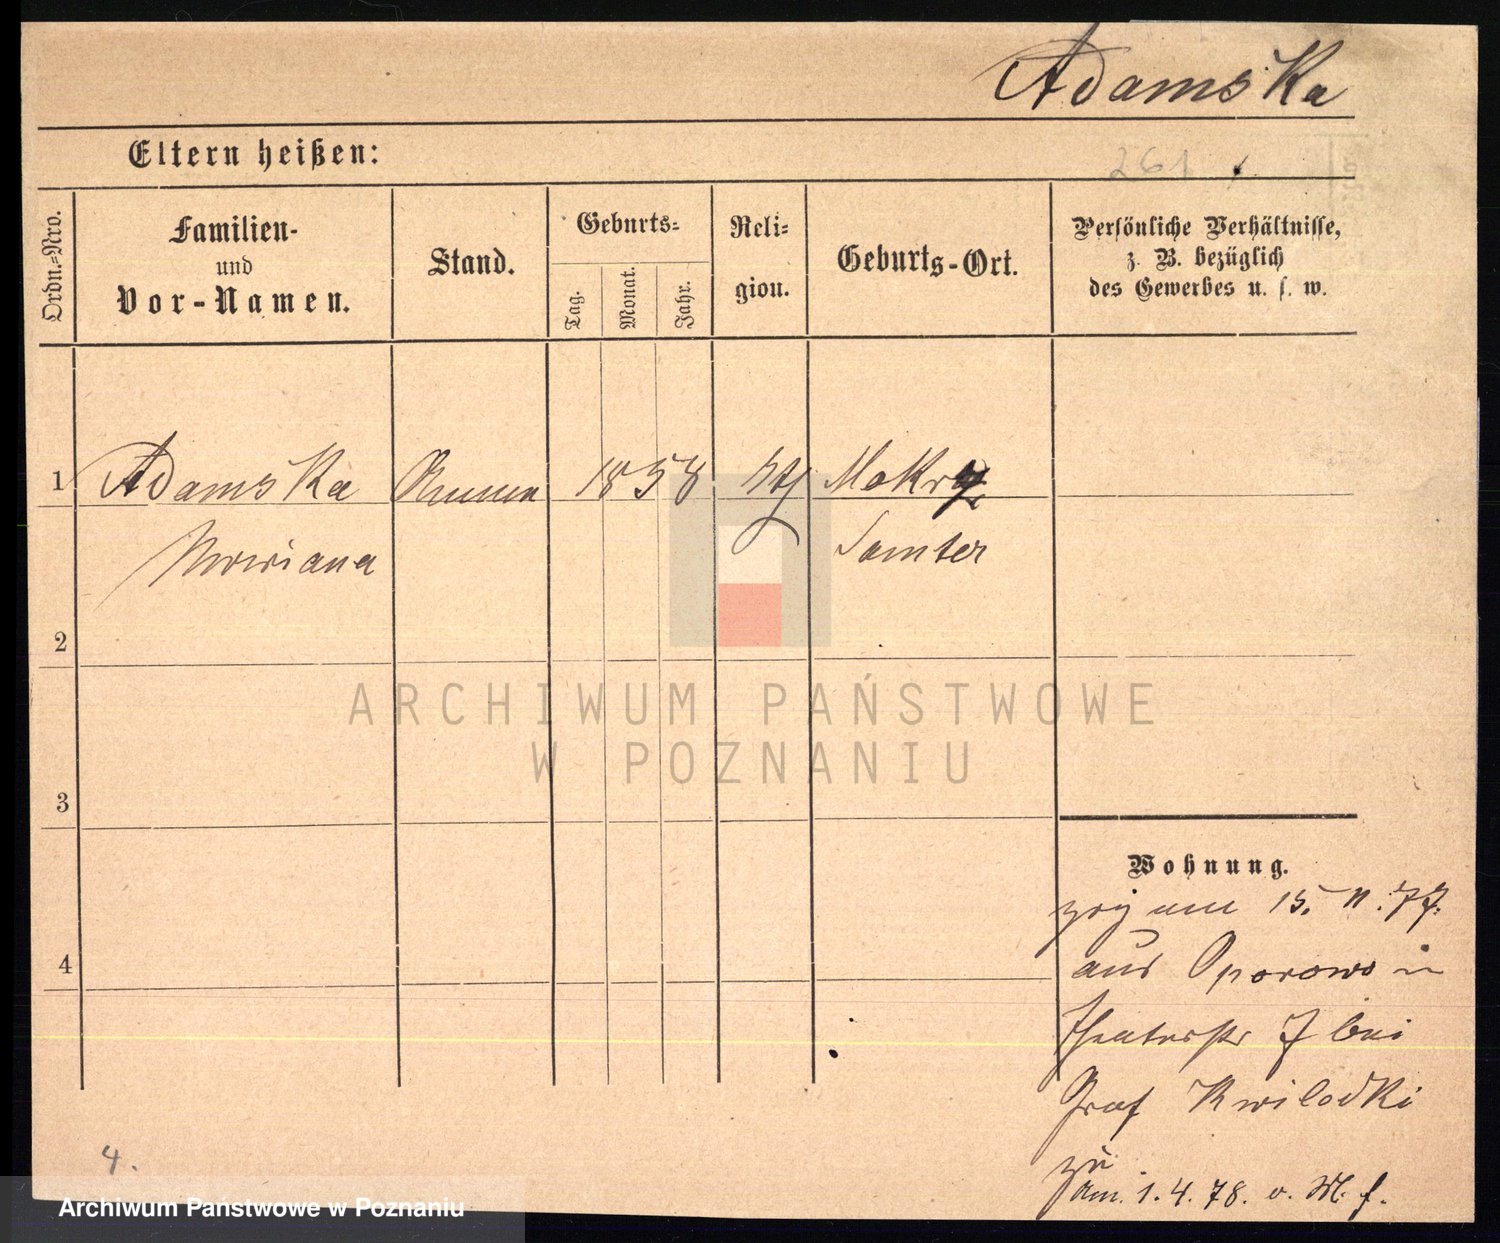 Adamska
Eltern heißen:
261
Ordn.=Nro.
Familien-
und
Vor-Namen.
Stand.
Geburts=
Tag.
Monat.
Jahr.
Reli=
gion.
Geburts-Ort.
Persönliche Verhältnisse,
z. B. bezüglich
des Gewerbes u. s. w.
1
Adamska
Amme
1858
kth
Mokrz
Samter
2
3
4
ARCHIWUM PAŃSTWOWE
W POZNANIU
Wohnung.
zog am 15. 11. 77.
aus Oporowo in
Theaterstr 7 bei
Graf Kwilecki
am. 1. 4. 78. v.
4.
Archiwum Państwowe w Poznaniu